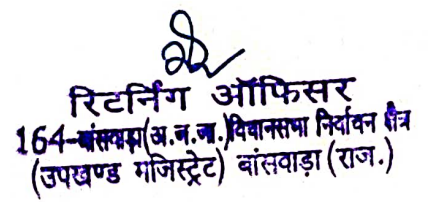 रिटर्निंग ऑफिसर
164-बांसवाड़ा(अ.ज.जा.)विधानसभा निर्वाचन क्षेत्र
(उपखण्ड मजिस्ट्रेट) बांसवाड़ा (राज.)